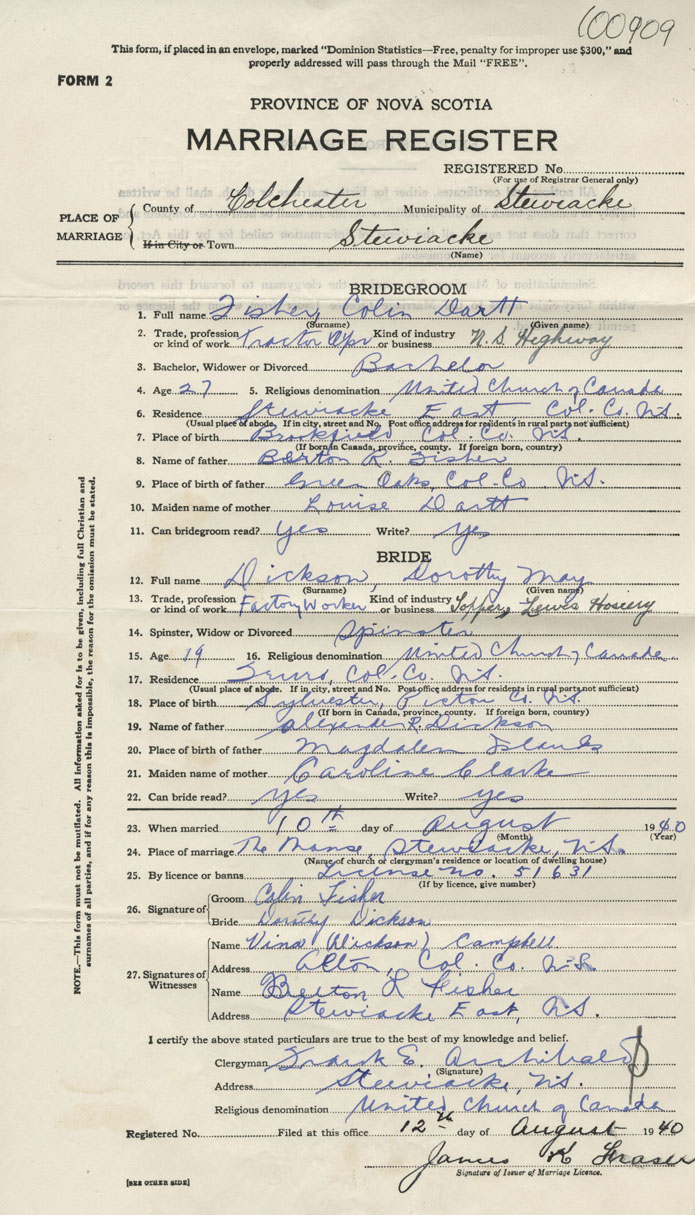 100909
This form, if placed in an envelope, marked "Dominion Statistics—Free, penalty for improper use $300," and
properly addressed will pass through the Mail "FREE".
FORM 2
PROVINCE OF NOVA SCOTIA
MARRIAGE REGISTER
REGISTERED No.
(For use of Registrar General only)
PLACE OF MARRIAGE
County of Colchester Municipality of Stewiacke
If in City or Town Stewiacke
(Name)
BRIDEGROOM
1. Full name Fisher, Colin Dartt
(Surname) (Given name)
2. Trade, profession or kind of work Tractor Opr Kind of industry or business N.S. Highway
3. Bachelor, Widower or Divorced Bachelor
4. Age 27 5. Religious denomination United Church of Canada
6. Residence Stewiacke East, Col. Co. N.S.
(Usual place of abode. If in city, street and No. Post office address for residents in rural parts not sufficient)
7. Place of birth Brookfield Col. Co. N.S.
(If born in Canada, province, county. If foreign born, country)
8. Name of father Burton R. Fisher
9. Place of birth of father Green Oaks, Col-Co N.S.
10. Maiden name of mother Louise Dartt
11. Can bridegroom read? yes Write? yes
BRIDE
12. Full name Dickson, Dorothy May
(Surname) (Given name)
13. Trade, profession or kind of work Factory Worker Kind of industry or business Topper, Lewis Hosiery
14. Spinster, Widow or Divorced Spinster
15. Age 19 16. Religious denomination United Church of Canada
17. Residence Truro, Col-Co. N.S.
(Usual place of abode. If in city, street and No. Post office address for residents in rural parts not sufficient)
18. Place of birth Sylvester, Pictou Co. N.S.
(If born in Canada, province, county. If foreign born, country)
19. Name of father Alexander R. Dickson
20. Place of birth of father Magdalen Islands
21. Maiden name of mother Caroline Clarke
22. Can bride read? yes Write? yes
23. When married 10th day of August 1940
(Month) (Year)
24. Place of marriage The Manse, Stewiacke, N.S.
(Name of church or clergyman's residence or location of dwelling house)
25. By licence or banns License no. 51631
(If by licence, give number)
26. Signature of
Groom Colin Fisher
Bride Dorothy Dickson
27. Signatures of Witnesses
Name Vina (Dickson) Campbell
Address Alton, Col. Co. N.S.
Name Burton R Fisher
Address Stewiacke East, N.S.
I certify the above stated particulars are true to the best of my knowledge and belief.
Clergyman Frank E. Archibald
(Signature)
Address Stewiacke, N.S.
Religious denomination United Church of Canada
Registered No. Filed at this office 12th day of August 1940
James K Fraser
Signature of Issuer of Marriage Licence.
[SEE OTHER SIDE]
NOTE.—This form must not be mutilated. All information asked for is to be given, including full Christian and
surnames of all parties, and if for any reason this is impossible, the reason for the omission must be stated.